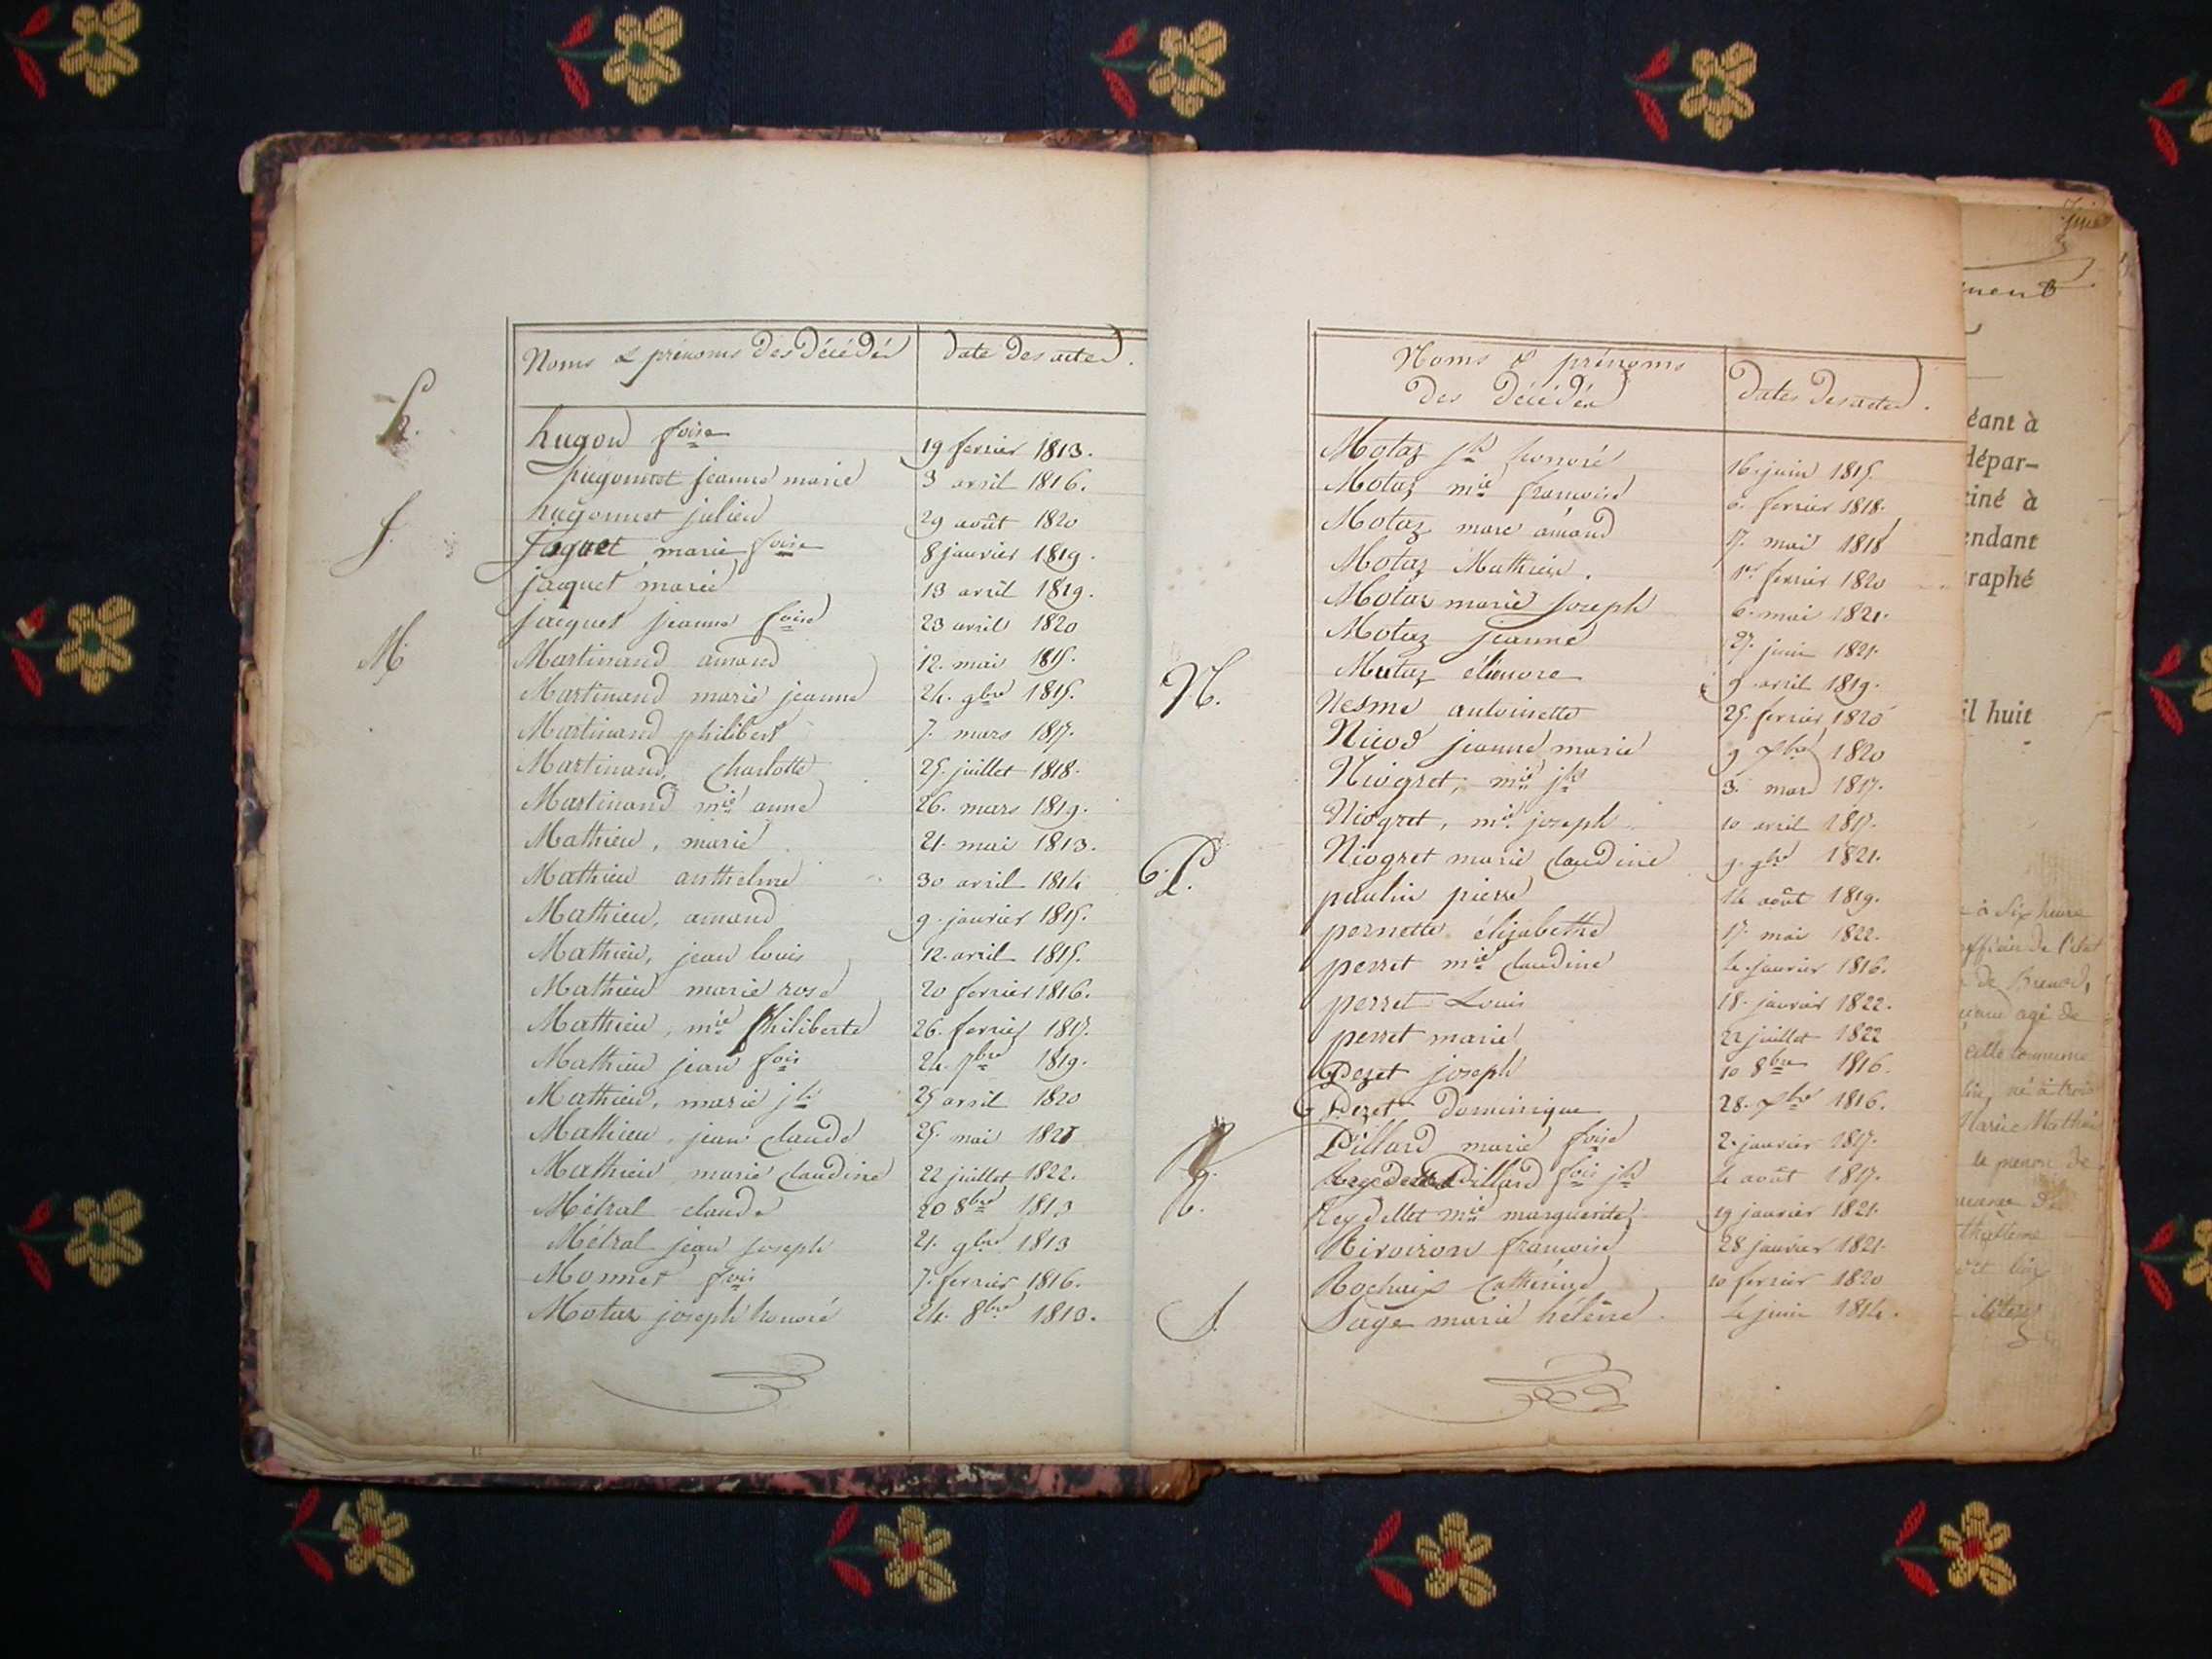 Noms & prénoms des décédés
date des actes.
h.
hugon foise
19 fevrier 1813.
hugonnet jeanne marie
3 avril 1816.
hugonnet julien
29 août 1820
J.
jaquet marie foise
8 janvier 1819.
jacquet marie
13 avril 1819.
jacquet jeanne foise
23 avril 1820
M
Martinand amand
12. mai 1815.
Martinand marie jeanne
24. 9bre 1815.
Martinand philibert
7. mars 1817.
Martinand, Charlotte
25. juillet 1818.
Martinand mie anne
26. mars 1819.
Mathieu, marie
21. mai 1813.
Mathieu anthelme
30 avril 1814
Mathieu, amand
9. janvier 1815.
Mathieu, jean louis
12. avril 1815.
Mathieu marie rose
20 fevrier 1816.
Mathieu, mie philiberte
26. fevrier 1817.
Mathieu jean fois
24. 7bre 1819.
Mathieu, marie jh
25 avril 1820
Mathieu, jean claude
25. mai 1821
Mathieu marie claudine
22 juillet 1822.
Métral claude
20 8bre 1813
Métral jean joseph
21. 9bre 1813
Monnet fois
7. fevrier 1816.
Motaz joseph honoré
24. 8bre 1810.
Noms & prénoms
des décédés
dates des actes.
Motaz jh honoré
16. juin 1815.
Motaz mie francoise
6. fevrier 1818.
Motaz marc amand
17. mai 1818
Motaz Mathieu.
1er fevrier 1820
Motaz marie joseph
6. mai 1821.
Motaz jeanne
27. juin 1821.
Mutaz éléonore
9. avril 1819.
N.
Nesme antoinette
25. fevrier 1820
Nicod jeanne marie
9 7bre 1820
Niogret, mie jh
3. mars 1817.
Niogret, mie joseph
10 avril 1817.
Niogret marie claudine
9. 9bre 1821.
P.
paulin pierre
14 août 1819.
pernette élisabethe
17. mai 1822.
perret mie claudine
4. janvier 1816.
perret Louis
18. janvier 1822.
perret marie
22 juillet 1822
Pezet joseph
10 8bre 1816.
Pezet Dominique
28. 7bre 1816.
Pillard marie foise
2. janvier 1817.
Pillard fois jh
4 août 1817.
Reydellet mie marguerite
19 janvier 1821.
Rivoiron francoise
28 janvier 1821.
Rochaix Catherine
10 fevrier 1820
S.
Sage marie heléne.
4 juin 1814.
éant à
dépar-
tiné à
endant
raphé
il huit
à six heure
officier de l'état
de
agé de
cette commune
né à trois
Marie Mathieu
le prenom de